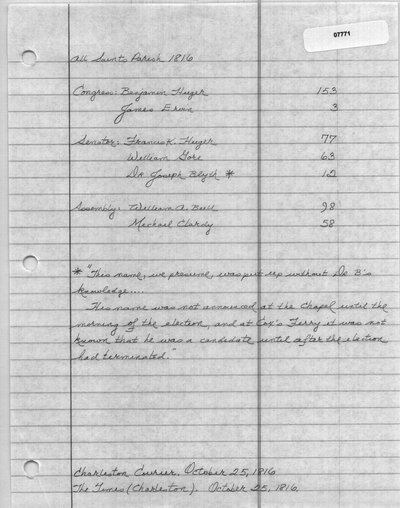 07771
All Saints Parish 1816
Congress: Benjamin Huger 153
James Ervin 3
Senator: Francis K. Huger 77
William Gore 63
Dr Joseph Blyth * 12
Assembly: William A. Bull 98
Michael Clardy 58
* "This name, we presume, was put up without Dr B's
knowledge....
This name was not announced at the Chapel until the
morning of the election, and at Cox's Ferry it was not
known that he was a candidate until after the election
had terminated."
Charleston Courier. October 25, 1816
The Times (Charleston). October 25, 1816.